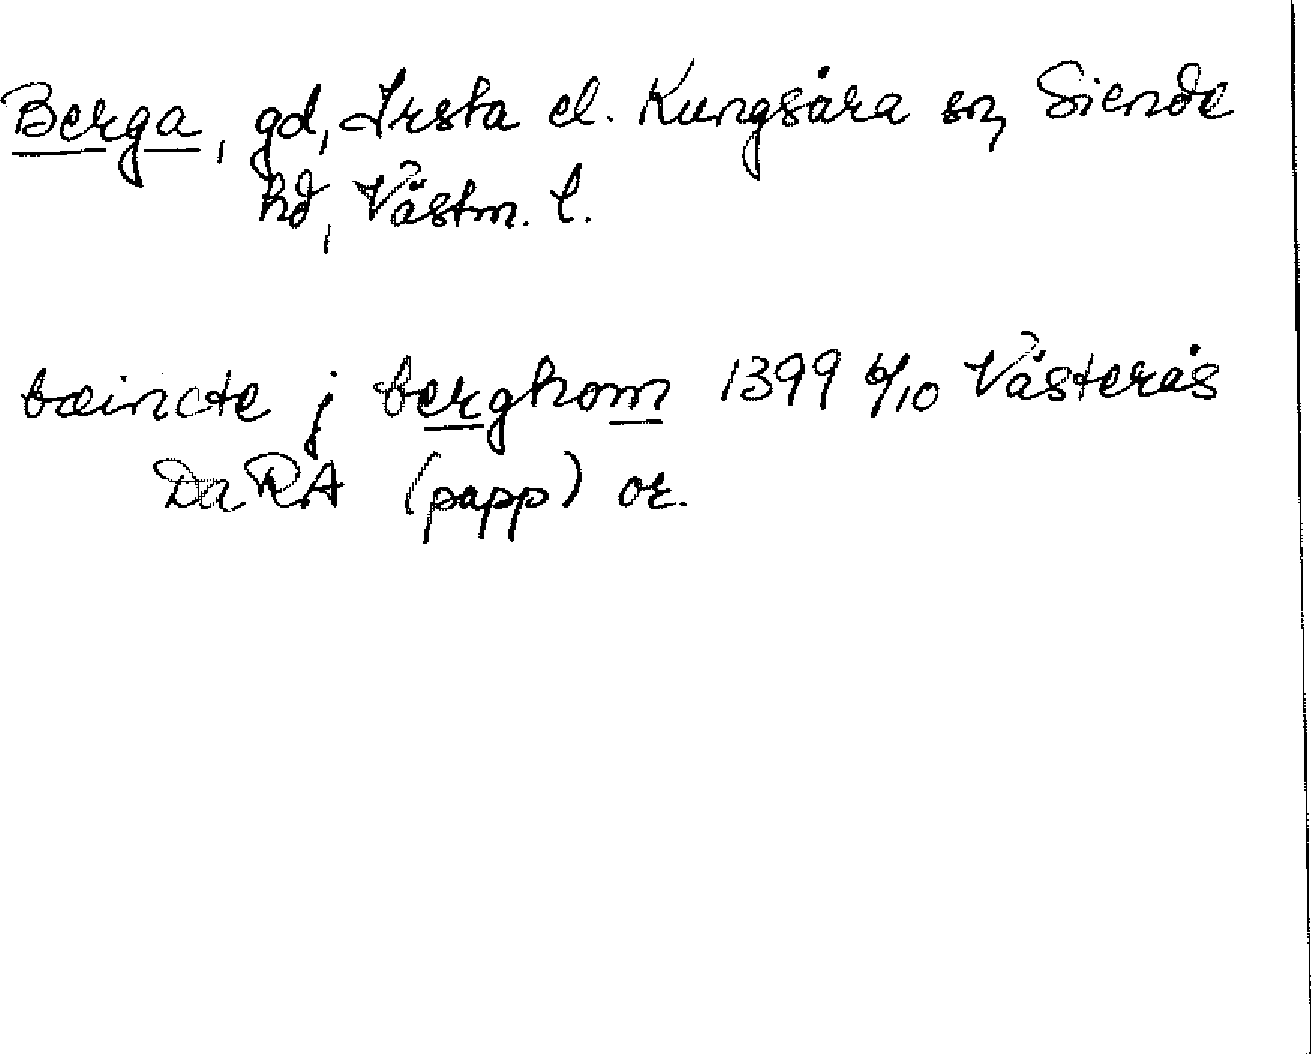 Berga, gd, Irsta el. Kungsåra sn, Siende
hd, Västm. l.
bæincte j berghom 1399 6/10 Västerås
Da RA (papp) or.